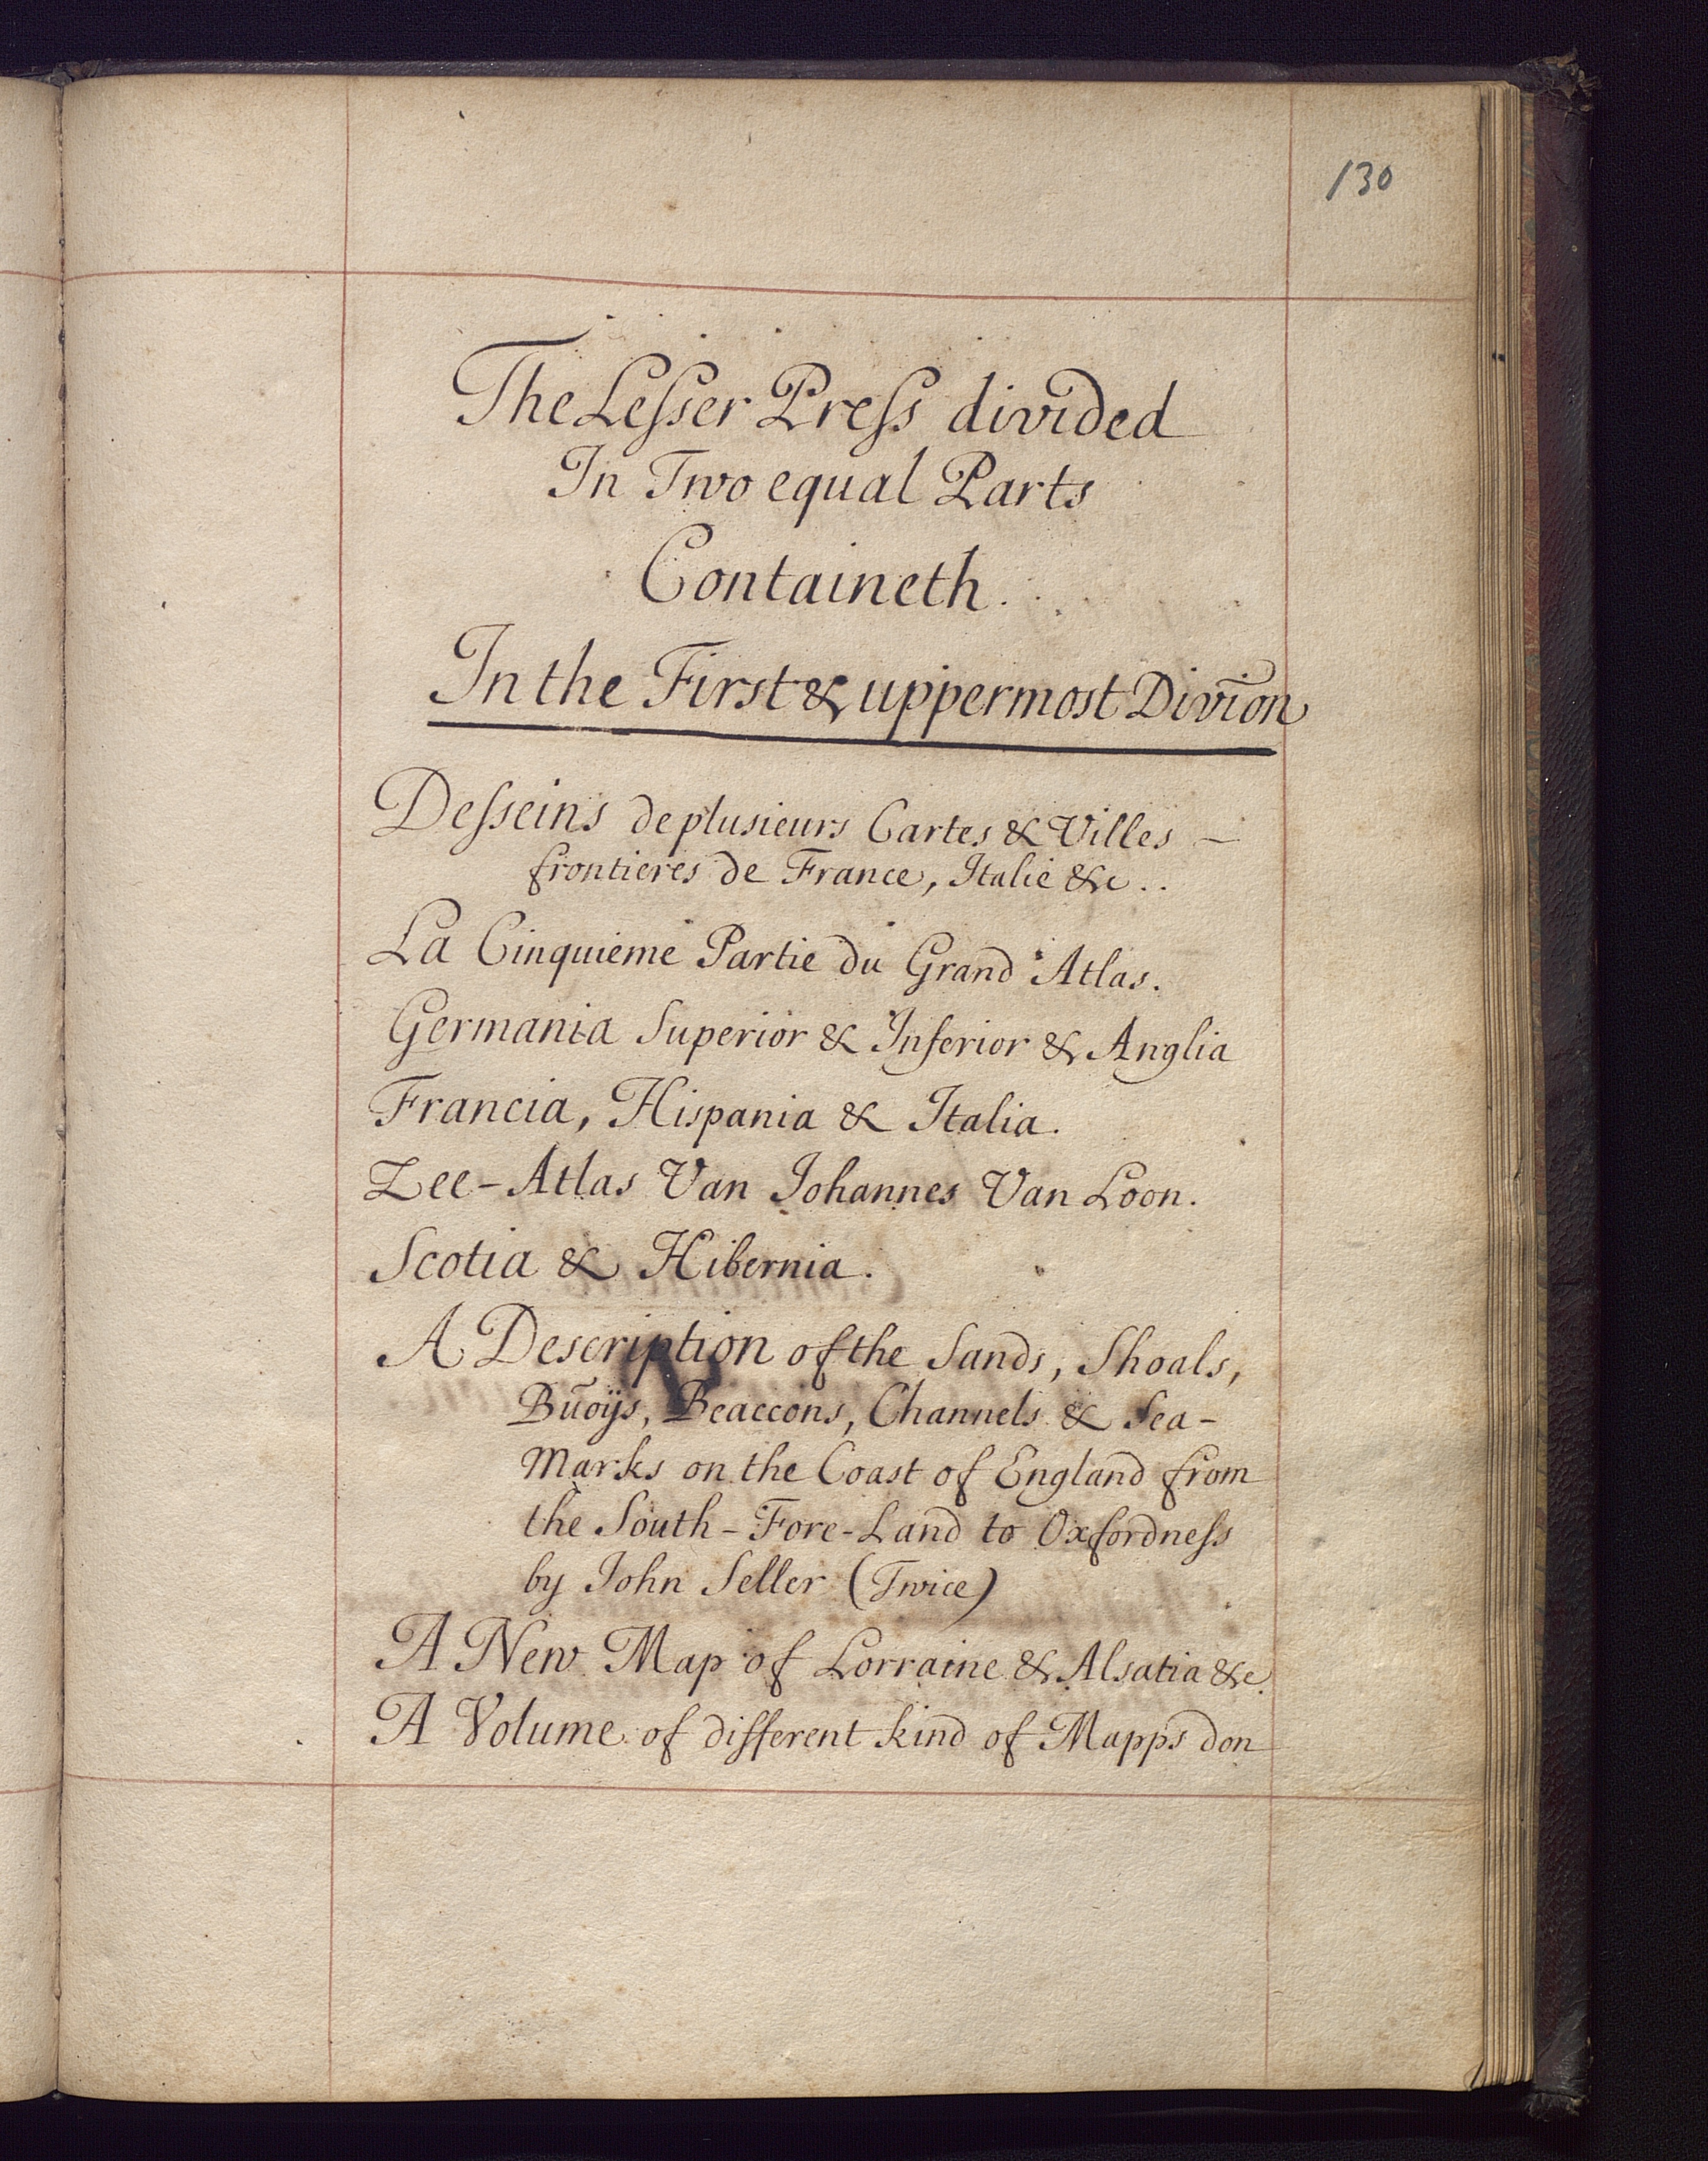 130
The Lesser Press divided
In Two equal Parts
Containeth.
In the First & uppermost Diviōn
Desseins de plusieurs Cartes & Villes –
frontieres de France, Italie &c..
La Cinquieme Partie du Grand Atlas.
Germania Superior & Inferior & Anglia
Francia, Hispania & Italia.
Zee-Atlas Van Johannes Van Loon.
Scotia & Hibernia.
A Description of the Sands, Shoals,
Būoÿs, Beaccons, Channels & Sea-
Marks on the Coast of England from
the South-Fore-Land to Oxfordness
by John Seller (Twice)
A New Map of Lorraine & Alsatia &c.
A Volume of different kind of Mapps don